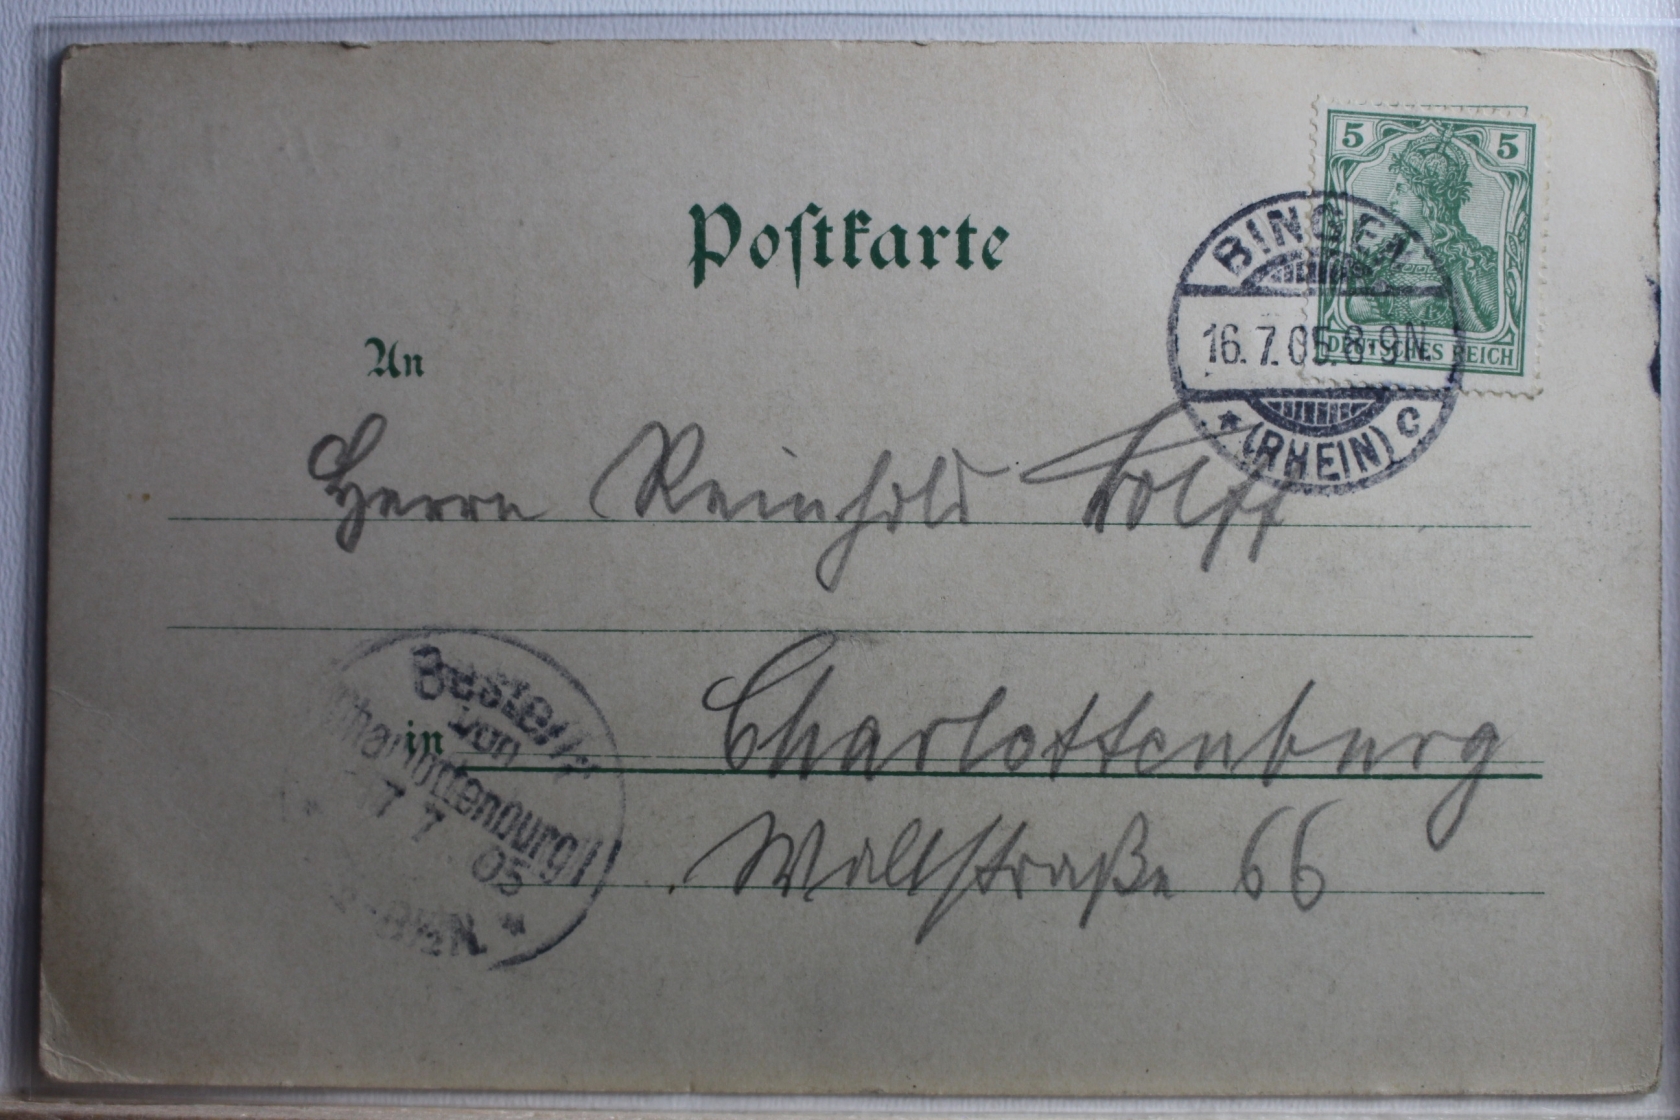 5 5
DEUTSCHES REICH
BINGEN
16.7.05. 8-9N.
* (RHEIN) C
Postkarte
An
Herrn Reinhold Wolff
in Charlottenburg
Wallstraße 66
Bestellt
von
Charlottenburg
17 7 05